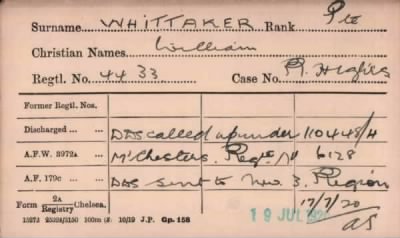 Surname WHITTAKER Rank Pte
Christian Names William
Regtl. No. 4433 Case No.
Former Regtl. Nos.
Discharged ... ... DAS called up under 11044S/4
A.F.W. 3972A ... M'Chesters. Regtl No 6128
A.F. 179c ... ... DAS sent to No. 3. Region
Form 2A/Registry Chelsea. 17/7/20
15273 25324/3150 100m (8) 10/19 J.P. Gp. 158 19 JUL 1920